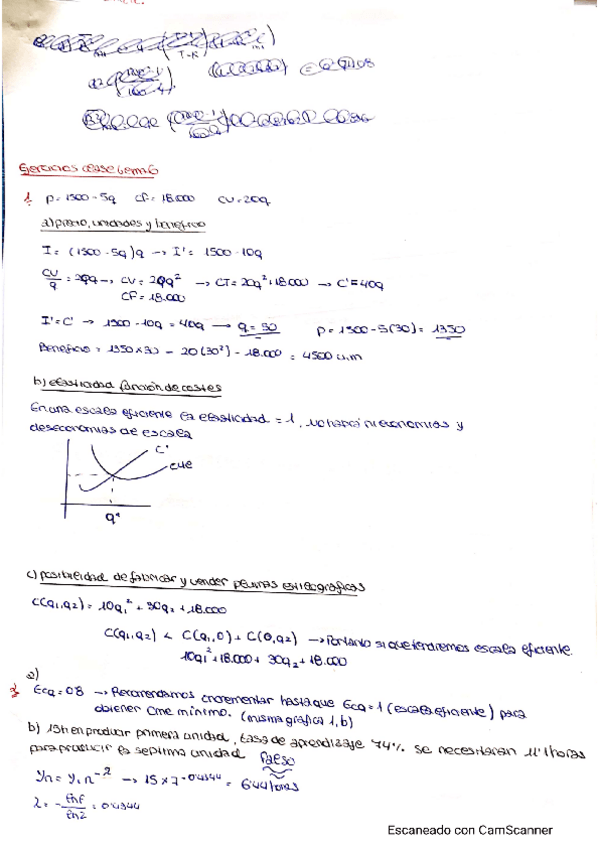 T-R
Ejercicios clase tema 6
1. p = 1500 - 5q CF = 18.000 CU = 20q
a) precio, unidades y beneficio
I = (1500 - 5q)q → I' = 1500 - 10q
CV/q = 20q → CV = 20q² → CT = 20q² + 18.000 → C' = 40q
CF = 18.000
I' = C' → 1500 - 10q = 40q → q = 30 p = 1500 - 5(30) = 1350
Beneficio = 1350 x 30 - 20(30²) - 18.000 = 4500 u.m
b) elasticidad función de costes
En una escala eficiente la elasticidad = 1, no hay ni economías y
deseconomías de escala
C'
CMe
q*
c) posibilidad de fabricar y vender plumas estilográficas
C(q1,q2) = 10q1² + 30q2 + 18.000
C(q1,q2) < C(q1,0) + C(0,q2) → Por tanto si que tendremos escala eficiente.
10q1² + 18.000 + 30q2 + 18.000
a)
2. Ecq = 0'8 → Recomendamos incrementar hasta que Ecq = 1 (escala eficiente) para
obtener CMe mínimo. (misma gráfica 1, b)
b) 15h en producir primera unidad, tasa de aprendizaje 74%. se necesitarán 11' horas
para producir la séptima unidad Falso
Yn = y1 n^-λ → 15 x 7^-0'4344 = 6'44 horas
λ = - ln f / ln 2 = 0'4344
Escaneado con CamScanner